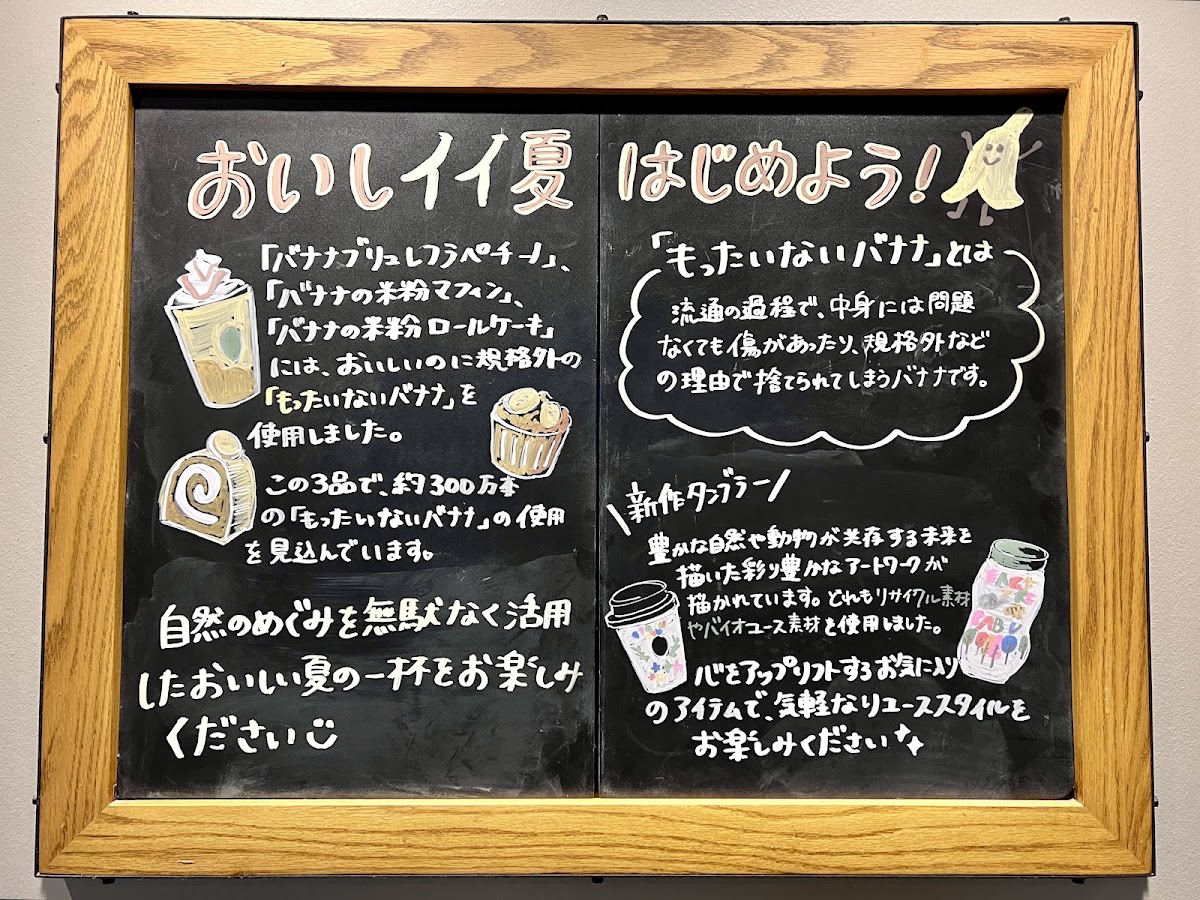 おいしイイ夏 はじめよう!
「バナナブリュレフラペチーノ」、
「バナナの米粉マフィン」、
「バナナの米粉ロールケーキ」
には、おいしいのに規格外の
「もったいないバナナ」を
使用しました。
この3品で、約300万本
の「もったいないバナナ」の使用
を見込んでいます。
自然のめぐみを無駄なく活用
したおいしい夏の一杯をお楽しみ
ください
「もったいないバナナ」とは
流通の過程で、中身には問題
なくても傷があったり、規格外など
の理由で捨てられてしまうバナナです。
\新作タンブラー/
豊かな自然や動物が共存する未来を
描いた彩り豊かなアートワークが
描かれています。どれもリサイクル素材
やバイオユース素材を使用しました。
心をアップリフトするお気に入り
のアイテムで、気軽なリユーススタイルを
お楽しみください